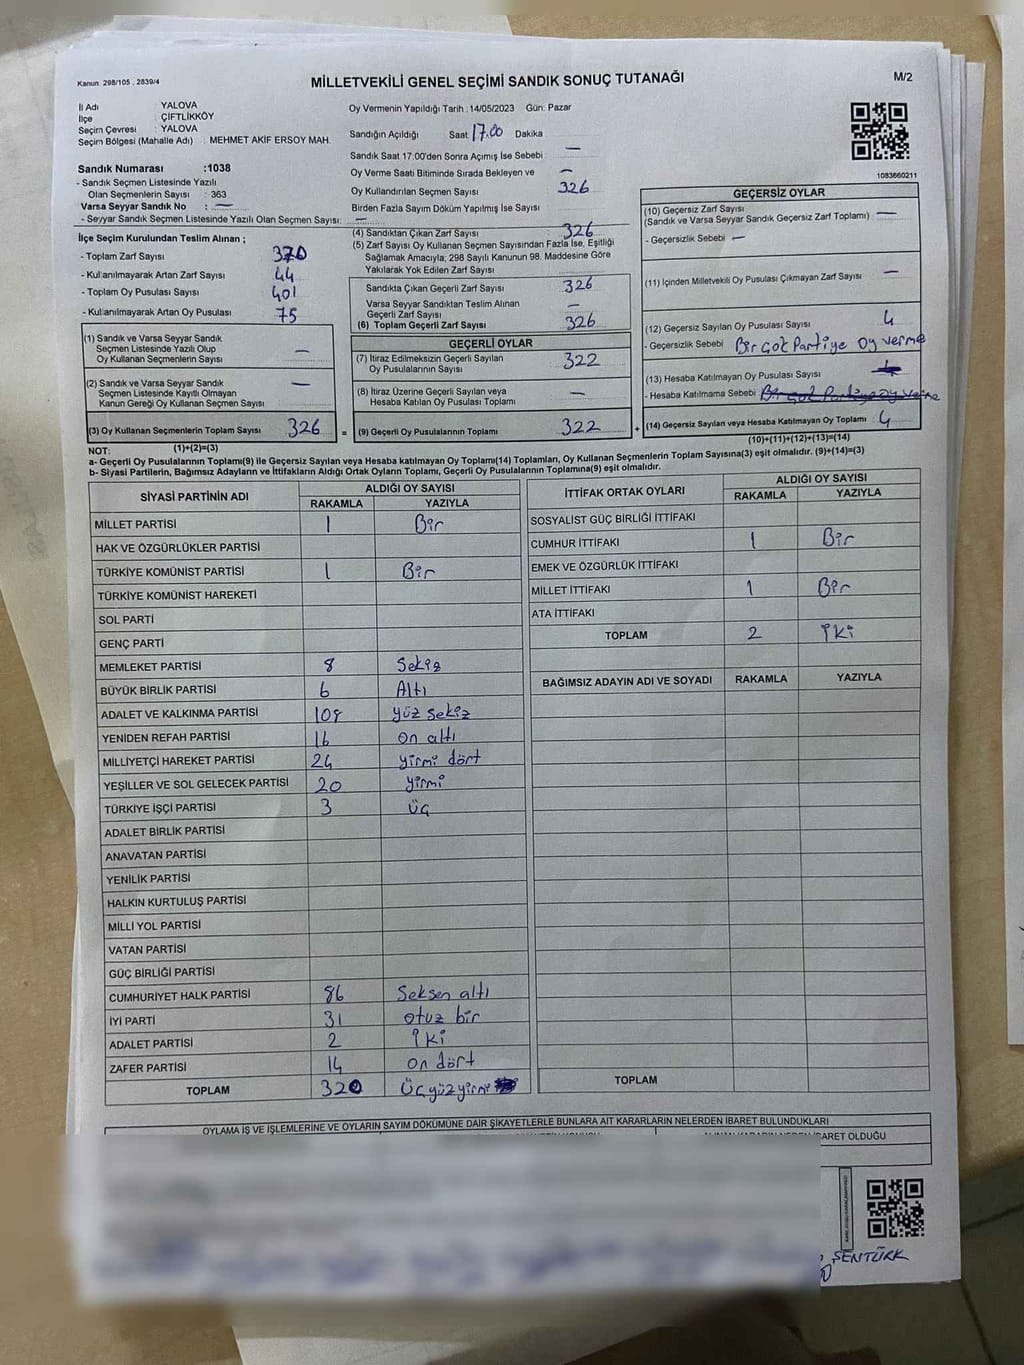 Kanun 298/105 , 2839/4
MİLLETVEKİLİ GENEL SEÇİMİ SANDIK SONUÇ TUTANAĞI
M/2
İl Adı : YALOVA
İlçe : ÇİFTLİKKÖY
Seçim Çevresi : YALOVA
Seçim Bölgesi (Mahalle Adı) : MEHMET AKİF ERSOY MAH.
Sandık Numarası :1038
- Sandık Seçmen Listesinde Yazılı
Olan Seçmenlerin Sayısı : 363
Varsa Seyyar Sandık No : —
- Seyyar Sandık Seçmen Listesinde Yazılı Olan Seçmen Sayısı: —
Oy Vermenin Yapıldığı Tarih :14/05/2023 Gün: Pazar
Sandığın Açıldığı Saat 17.00 Dakika
Sandık Saat 17:00'den Sonra Açımış İse Sebebi : —
Oy Verme Saati Bitiminde Sırada Bekleyen ve —
Oy Kullandırılan Seçmen Sayısı 326
Birden Fazla Sayım Döküm Yapılmış İse Sayısı
1083660211
İlçe Seçim Kurulundan Teslim Alınan ;
- Toplam Zarf Sayısı : 370
- Kullanılmayarak Artan Zarf Sayısı : 44
- Toplam Oy Pusulası Sayısı : 401
- Kullanılmayarak Artan Oy Pusulası : 75
(1) Sandık ve Varsa Seyyar Sandık
Seçmen Listesinde Yazılı Olup
Oy Kullanan Seçmenlerin Sayısı —
(2) Sandık ve Varsa Seyyar Sandık
Seçmen Listesinde Kayıtlı Olmayan
Kanun Gereği Oy Kullanan Seçmen Sayısı —
(3) Oy Kullanan Seçmenlerin Toplam Sayısı 326
(1)+(2)=(3)
(4) Sandıktan Çıkan Zarf Sayısı : 326
(5) Zarf Sayısı Oy Kullanan Seçmen Sayısından Fazla İse, Eşitliği
Sağlamak Amacıyla; 298 Sayılı Kanunun 98. Maddesine Göre
Yakılarak Yok Edilen Zarf Sayısı :
Sandıkta Çıkan Geçerli Zarf Sayısı 326
Varsa Seyyar Sandıktan Teslim Alınan
Geçerli Zarf Sayısı —
(6) Toplam Geçerli Zarf Sayısı 326
GEÇERLİ OYLAR
(7) İtiraz Edilmeksizin Geçerli Sayılan
Oy Pusulalarının Sayısı 322
(8) İtiraz Üzerine Geçerli Sayılan veya
Hesaba Katılan Oy Pusulası Toplamı —
= (9) Geçerli Oy Pusulalarının Toplamı 322 +
GEÇERSİZ OYLAR
(10) Geçersiz Zarf Sayısı
(Sandık ve Varsa Seyyar Sandık Geçersiz Zarf Toplamı) —
- Geçersizlik Sebebi —
(11) İçinden Milletvekili Oy Pusulası Çıkmayan Zarf Sayısı —
(12) Geçersiz Sayılan Oy Pusulası Sayısı 4
- Geçersizlik Sebebi Bir çok Partiye Oy verme
(13) Hesaba Katılmayan Oy Pusulası Sayısı
- Hesaba Katılmama Sebebi Bir çok Partiye Oy verme
(14) Geçersiz Sayılan veya Hesaba Katılmayan Oy Toplamı 4
(10)+(11)+(12)+(13)=(14)
NOT:
a- Geçerli Oy Pusulalarının Toplamı(9) ile Geçersiz Sayılan veya Hesaba katılmayan Oy Toplamı(14) Toplamları, Oy Kullanan Seçmenlerin Toplam Sayısına(3) eşit olmalıdır. (9)+(14)=(3)
b- Siyasi Partilerin, Bağımsız Adayların ve İttifakların Aldığı Ortak Oyların Toplamı, Geçerli Oy Pusulalarının Toplamına(9) eşit olmalıdır.
SİYASİ PARTİNİN ADI ALDIĞI OY SAYISI
RAKAMLA YAZIYLA
MİLLET PARTİSİ 1 Bir
HAK VE ÖZGÜRLÜKLER PARTİSİ
TÜRKİYE KOMÜNİST PARTİSİ 1 Bir
TÜRKİYE KOMÜNİST HAREKETİ
SOL PARTİ
GENÇ PARTİ
MEMLEKET PARTİSİ 8 Sekiz
BÜYÜK BİRLİK PARTİSİ 6 Altı
ADALET VE KALKINMA PARTİSİ 108 yüz sekiz
YENİDEN REFAH PARTİSİ 16 on altı
MİLLİYETÇİ HAREKET PARTİSİ 24 yirmi dört
YEŞİLLER VE SOL GELECEK PARTİSİ 20 yirmi
TÜRKİYE İŞÇİ PARTİSİ 3 üç
ADALET BİRLİK PARTİSİ
ANAVATAN PARTİSİ
YENİLİK PARTİSİ
HALKIN KURTULUŞ PARTİSİ
MİLLİ YOL PARTİSİ
VATAN PARTİSİ
GÜÇ BİRLİĞİ PARTİSİ
CUMHURİYET HALK PARTİSİ 86 Seksen altı
İYİ PARTİ 31 otuz bir
ADALET PARTİSİ 2 iki
ZAFER PARTİSİ 14 on dört
TOPLAM 320 Üçyüzyirmi
İTTİFAK ORTAK OYLARI ALDIĞI OY SAYISI
RAKAMLA YAZIYLA
SOSYALİST GÜÇ BİRLİĞİ İTTİFAKI
CUMHUR İTTİFAKI 1 Bir
EMEK VE ÖZGÜRLÜK İTTİFAKI
MİLLET İTTİFAKI 1 Bir
ATA İTTİFAKI
TOPLAM 2 iki
BAĞIMSIZ ADAYIN ADI VE SOYADI RAKAMLA YAZIYLA
TOPLAM
OYLAMA İŞ VE İŞLEMLERİNE VE OYLARIN SAYIM DÖKÜMÜNE DAİR ŞİKAYETLERLE BUNLARA AİT KARARLARIN NELERDEN İBARET BULUNDUKLARI
İBARET OLDUĞU
ŞENTÜRK